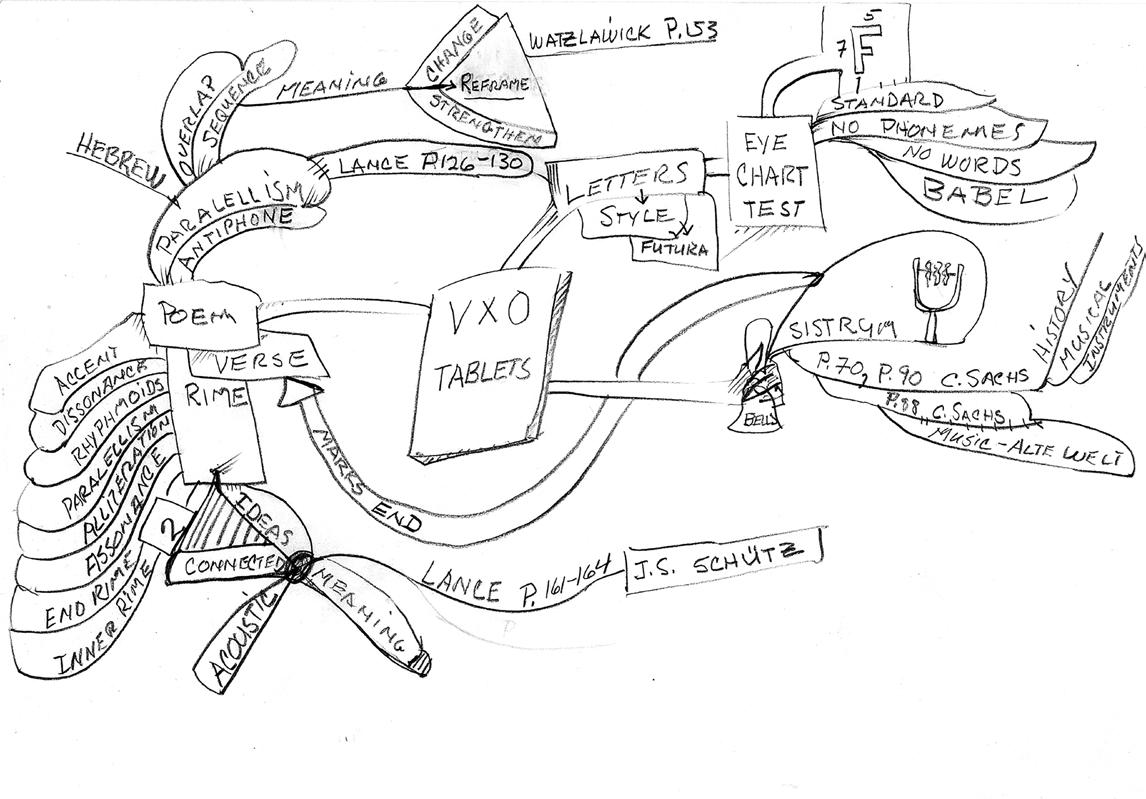 CHANGE
REFRAME
STRENGTHEN
WATZLAWICK P.153
MEANING
OVERLAP
SEQUENCE
HEBREW
PARALELLISM
ANTIPHONE
LANCE P.126-130
LETTERS
STYLE
FUTURA
EYE
CHART
TEST
5
7 F
1
STANDARD
NO PHONEMES
NO WORDS
BABEL
POEM
VERSE
RIME
VXO
TABLETS
ACCENT
DISSONANCE
RHYPHMOIDS
PARALELLISM
ALLITERATION
ASSONANCE
END RIME
INNER RIME
2
IDEAS
CONNECTED
ACOUSTIC
MEANING
MARKS END
LANCE P. 161-164
J.S. SCHÜTZ
P
BELLS
SISTRUM
P.70, P.90 C. SACHS
HISTORY
MUSICAL
INSTRUMENTS
P.88 C. SACHS
MUSIC-ALTE WELT